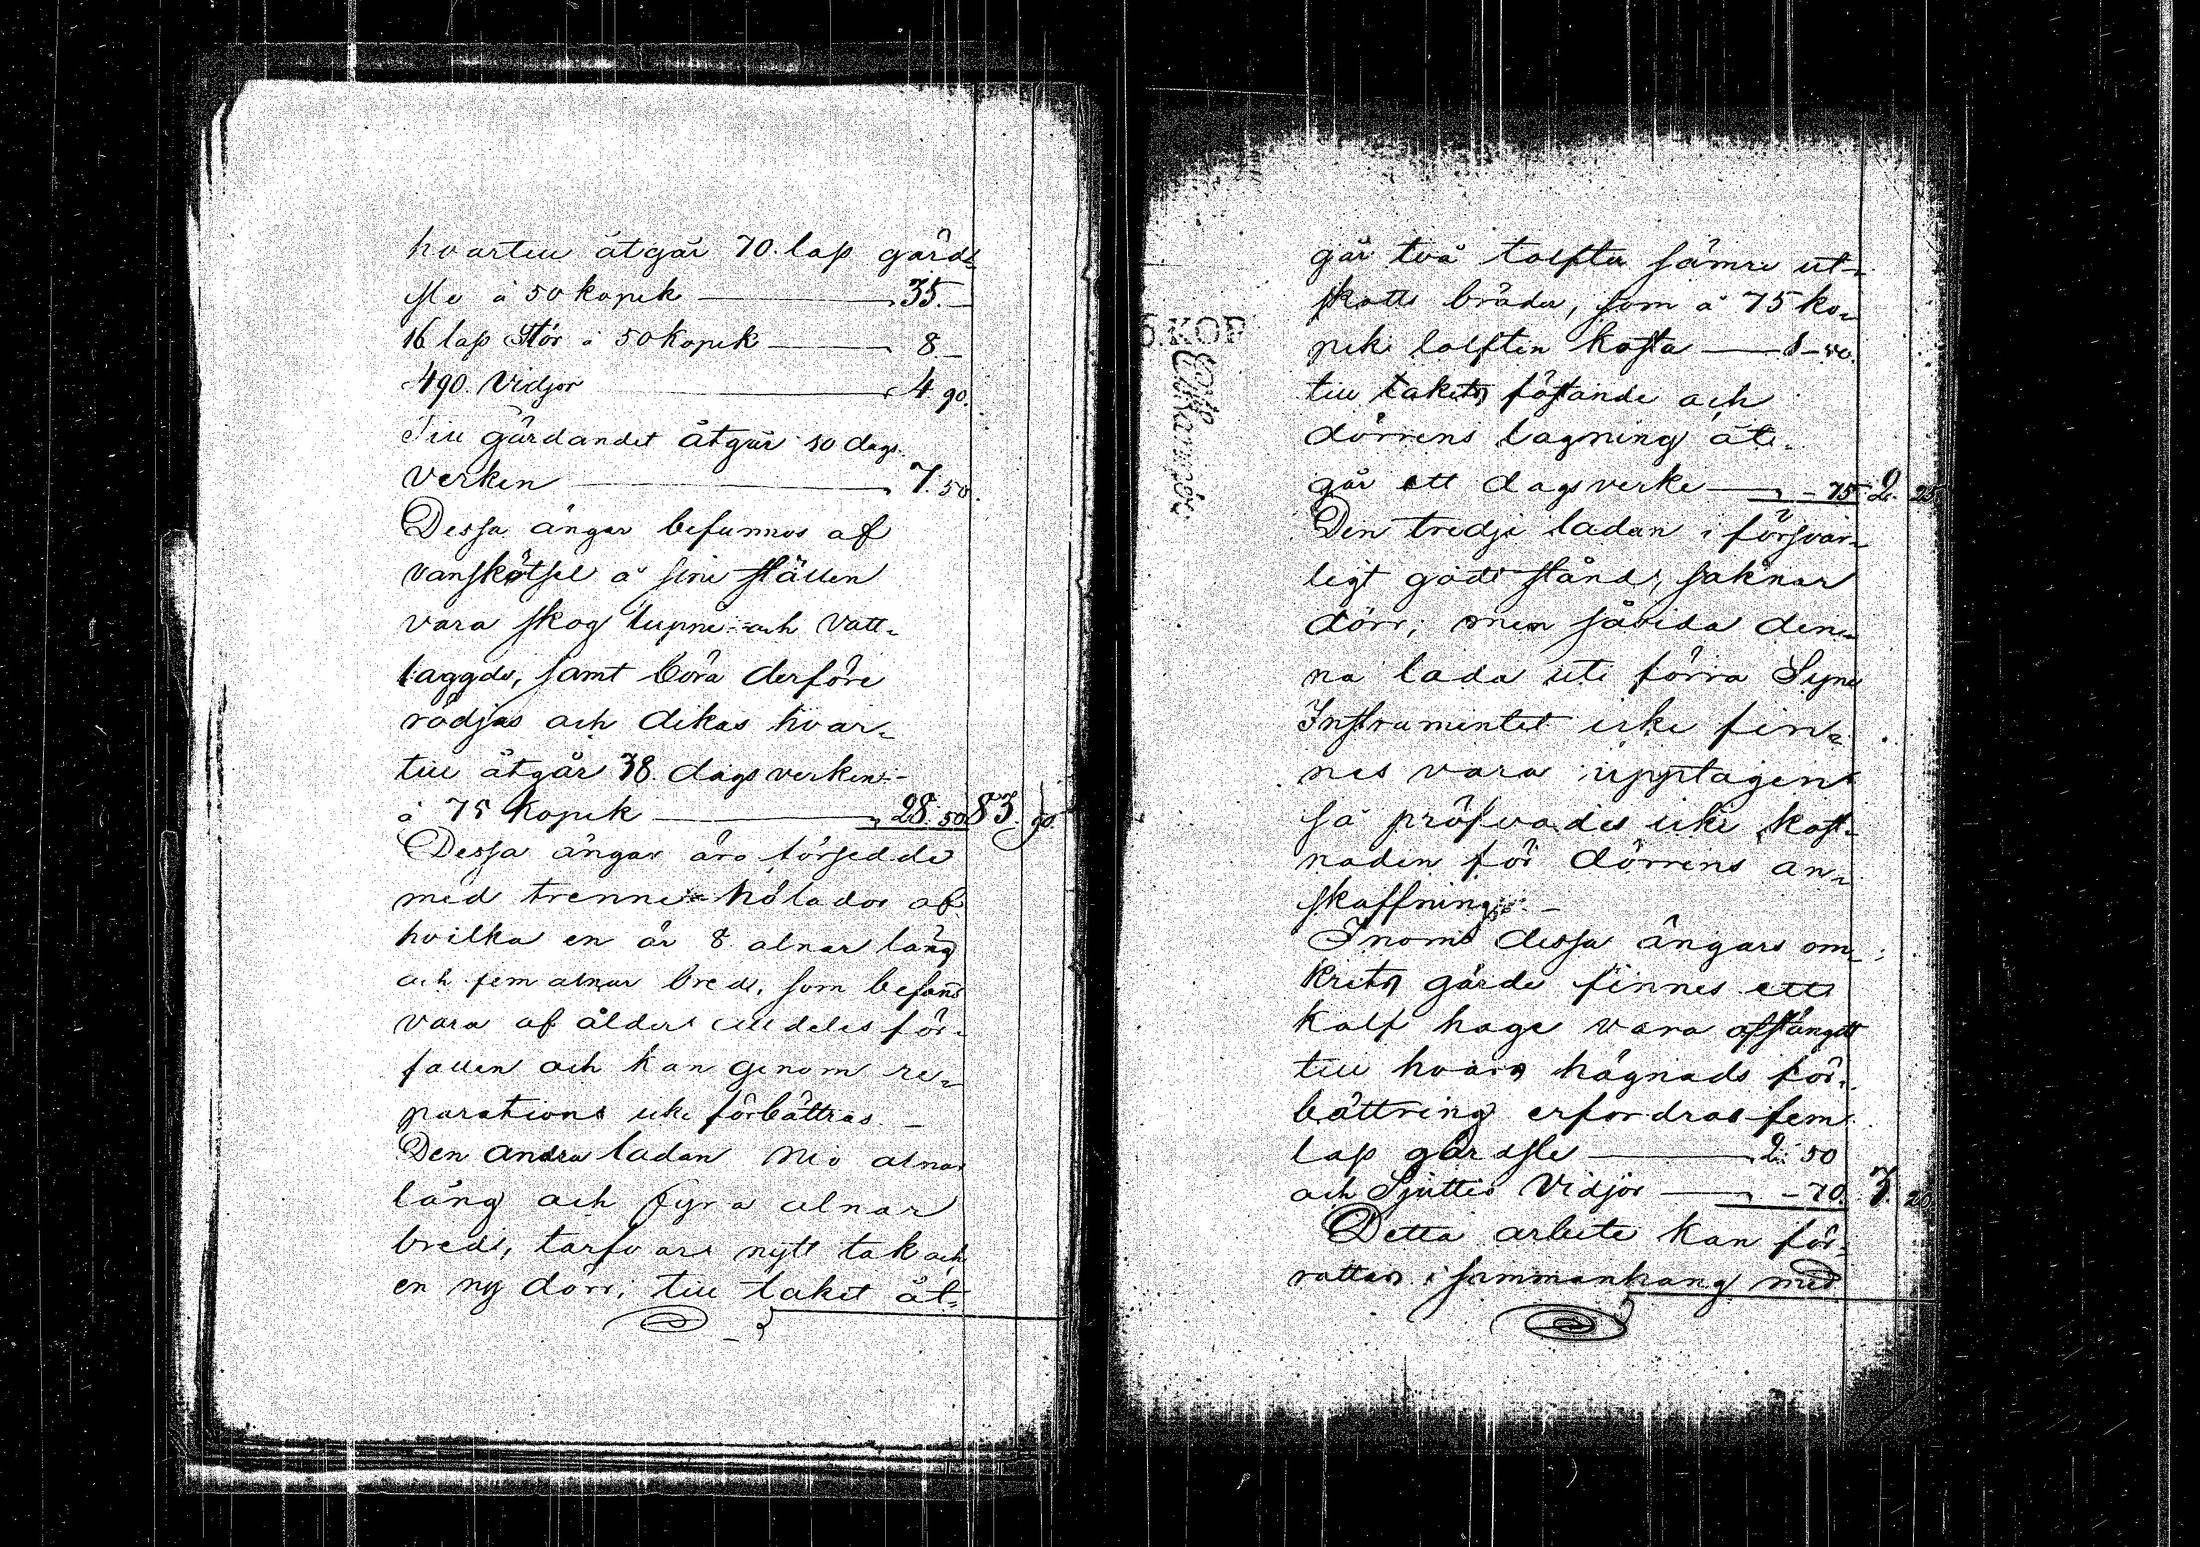 hvartill åtgår 70. lass gärds-
sle à 50 kopek — " 35. —
16 lass Stör à 50 Kopek — " 8 —
490. Vidjor — " 4 90.
Till gärdandet åtgår 10 dags-
verken — " 7. 50.
Dessa ängar befunnos af
vanskötsel å sine ställen
vara skog lupne och Vatt-
laggde, samt böra derföre
rödjas och dikas hvar-
till åtgår 38. dagsverken
à 75 Kopek — " 28. 50 83. 90.
Dessa ängar äro försedde
med trenne hölador af
hvilka en är 8 alnar lång
och fem alnar bred, som befans
vara af ålder alldeles för-
fallen och kan genom re-
parations icke förbättras. —
Den andra ladan nio alnar
lång och fyra alnar
bred, tarfvar nytt tak och
en ny dörr; till taket åt-
går två tolfter sämre ut-
skotts bräder, som à 75 ko-
pek tolften kosta — 1 — 50.
till takets fästande och
dörrens lagning åt-
går ett dagsverke — " — 75 2. 25
Den tredje ladan i försvar-
ligt godt stånd, saknar
dörr; men såvida den-
na lada uti förra Syne
Instrumentet icke fin-
nes vara upptagen
så pröfvades icke kost-
naden för dörrens an-
skaffning. —
Inom dessa ängars om-
krets gärde finnes ett
Kalf hage vara afstängdt
till hvars hägnads för-
bättring erfordras fem
lass gärdsle — " 2. 50
och Sjuttio Vidjor — " — 70. 3. 20.
Detta arbete kan för-
rättas i sammanhang med
KOP